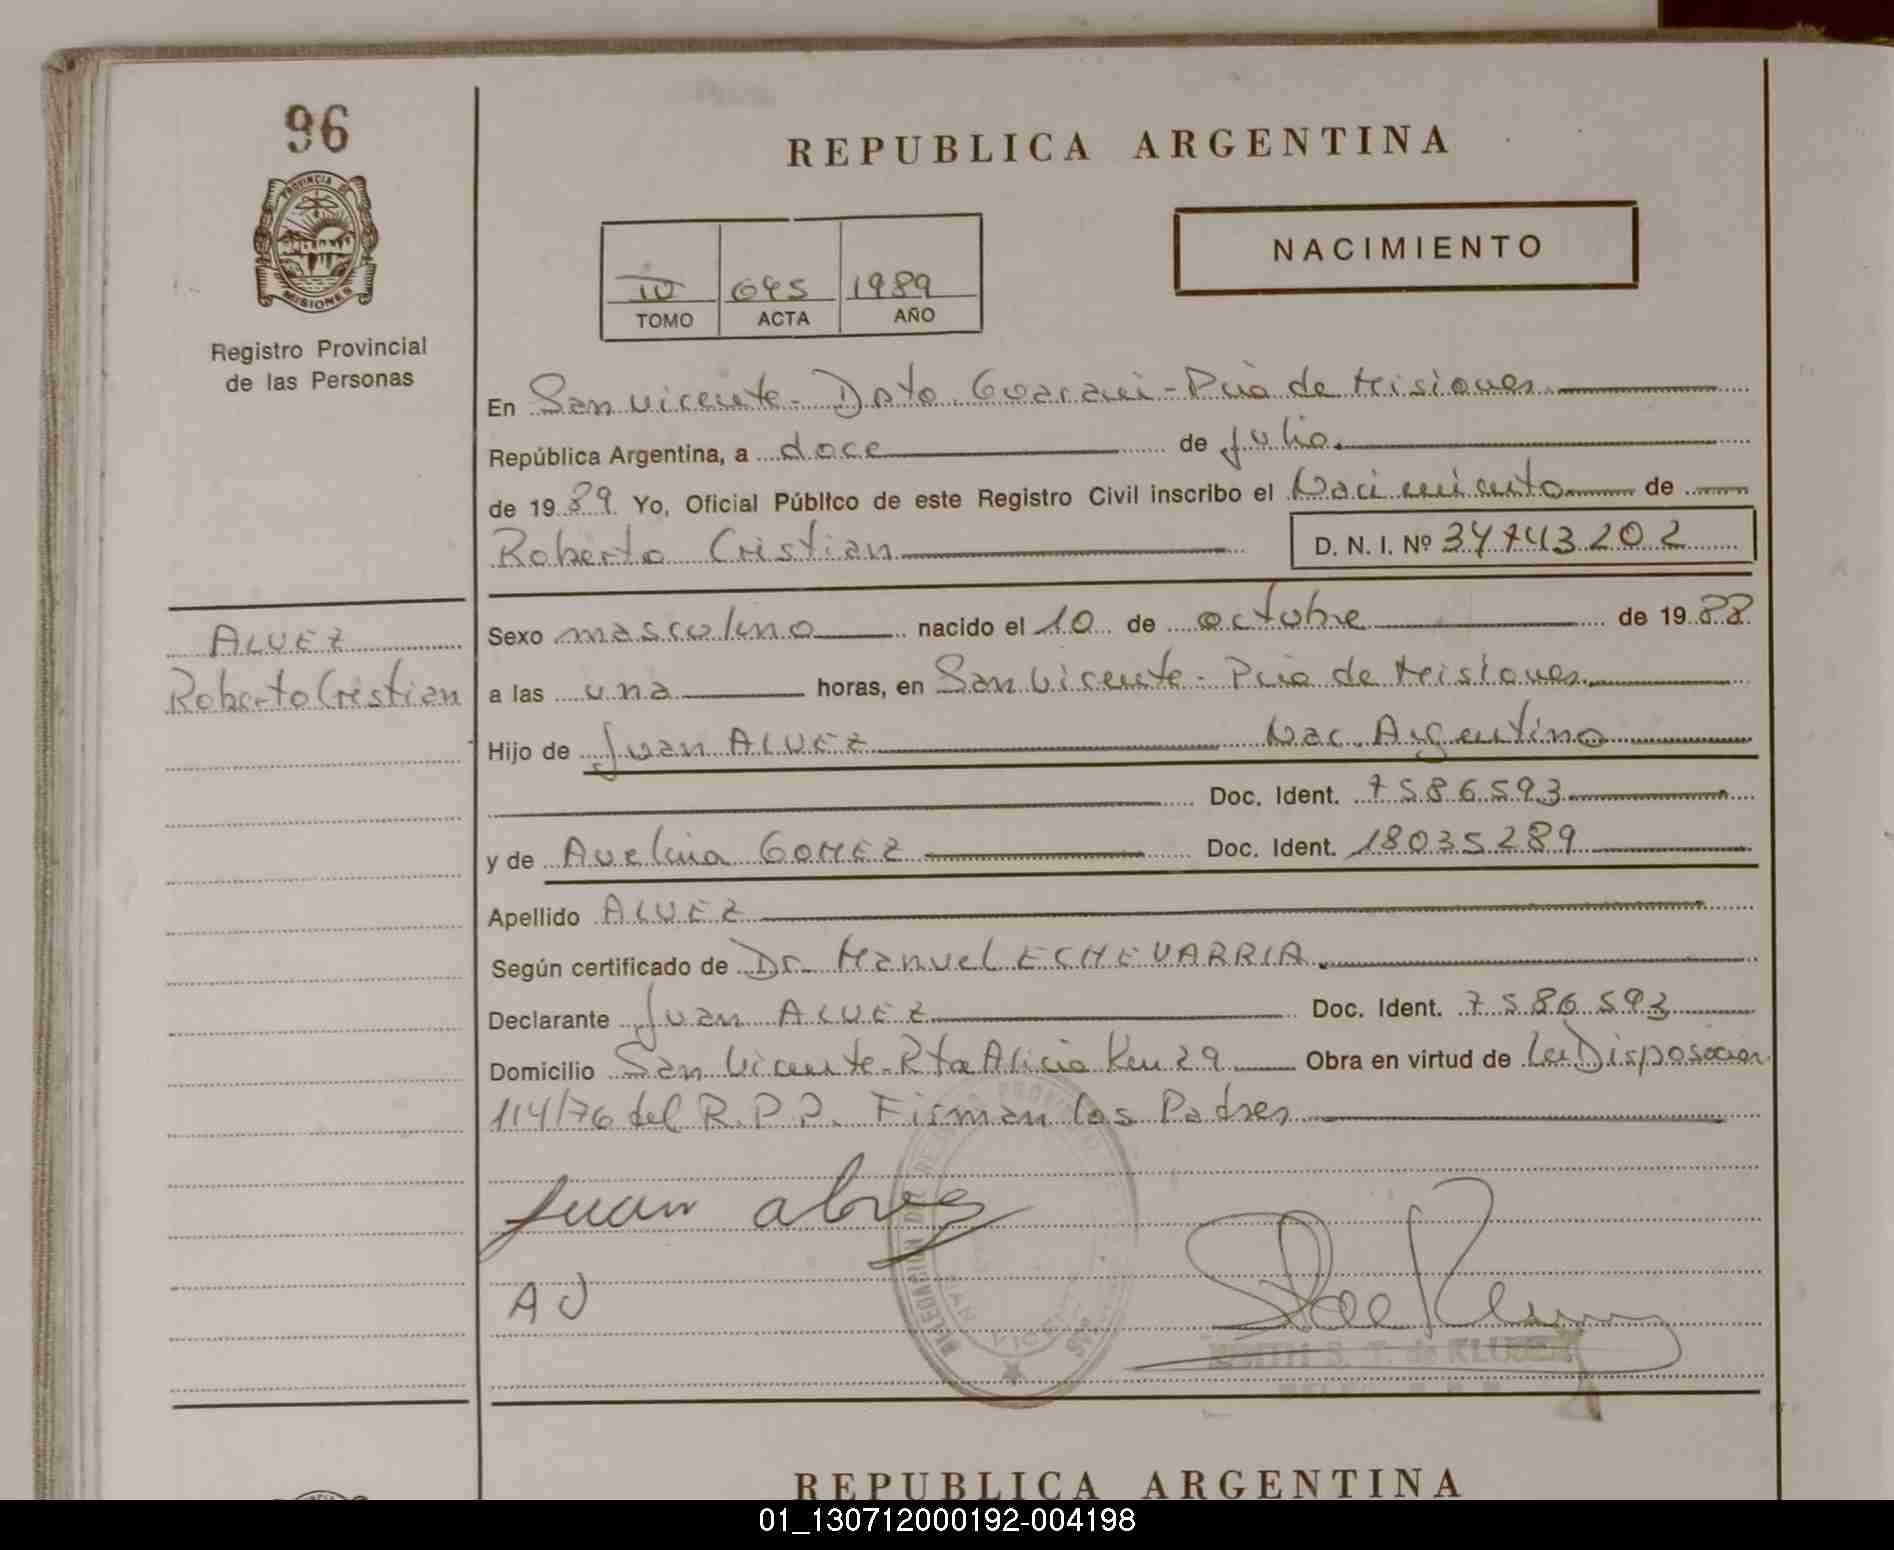 96
PROVINCIA DE
MISIONES
Registro Provincial
de las Personas
REPUBLICA ARGENTINA
NACIMIENTO
IV 645 1989
TOMO ACTA AÑO
En San Vicente - Dpto. Guaraní - Pcia de Misiones
República Argentina, a doce de Julio.
de 1989 Yo, Oficial Público de este Registro Civil inscribo el Nacimiento de
Roberto Cristian D. N. I. Nº 34743202
ALVEZ
Roberto Cristian
Sexo masculino nacido el 10 de octubre de 1988
a las una horas, en San Vicente - Pcia de Misiones
Hijo de Juan ALVEZ Nac. Argentino
Doc. Ident. 7586593
y de Avelina GOMEZ Doc. Ident. 18035289
Apellido ALVEZ
Según certificado de Dr. Manuel ECHEVARRIA.
Declarante Juan ALVEZ Doc. Ident. 7586593
Domicilio San Vicente - Rta Alicia Km 29 Obra en virtud de La Disposocion
114/76 del R.P.P. Firman los Padres
Juan alves
AJ
DELEGACION DEL REGISTRO PROVINCIAL
SAN VICENTE
S. T. de KLUBER
REPUBLICA ARGENTINA
01_130712000192-004198